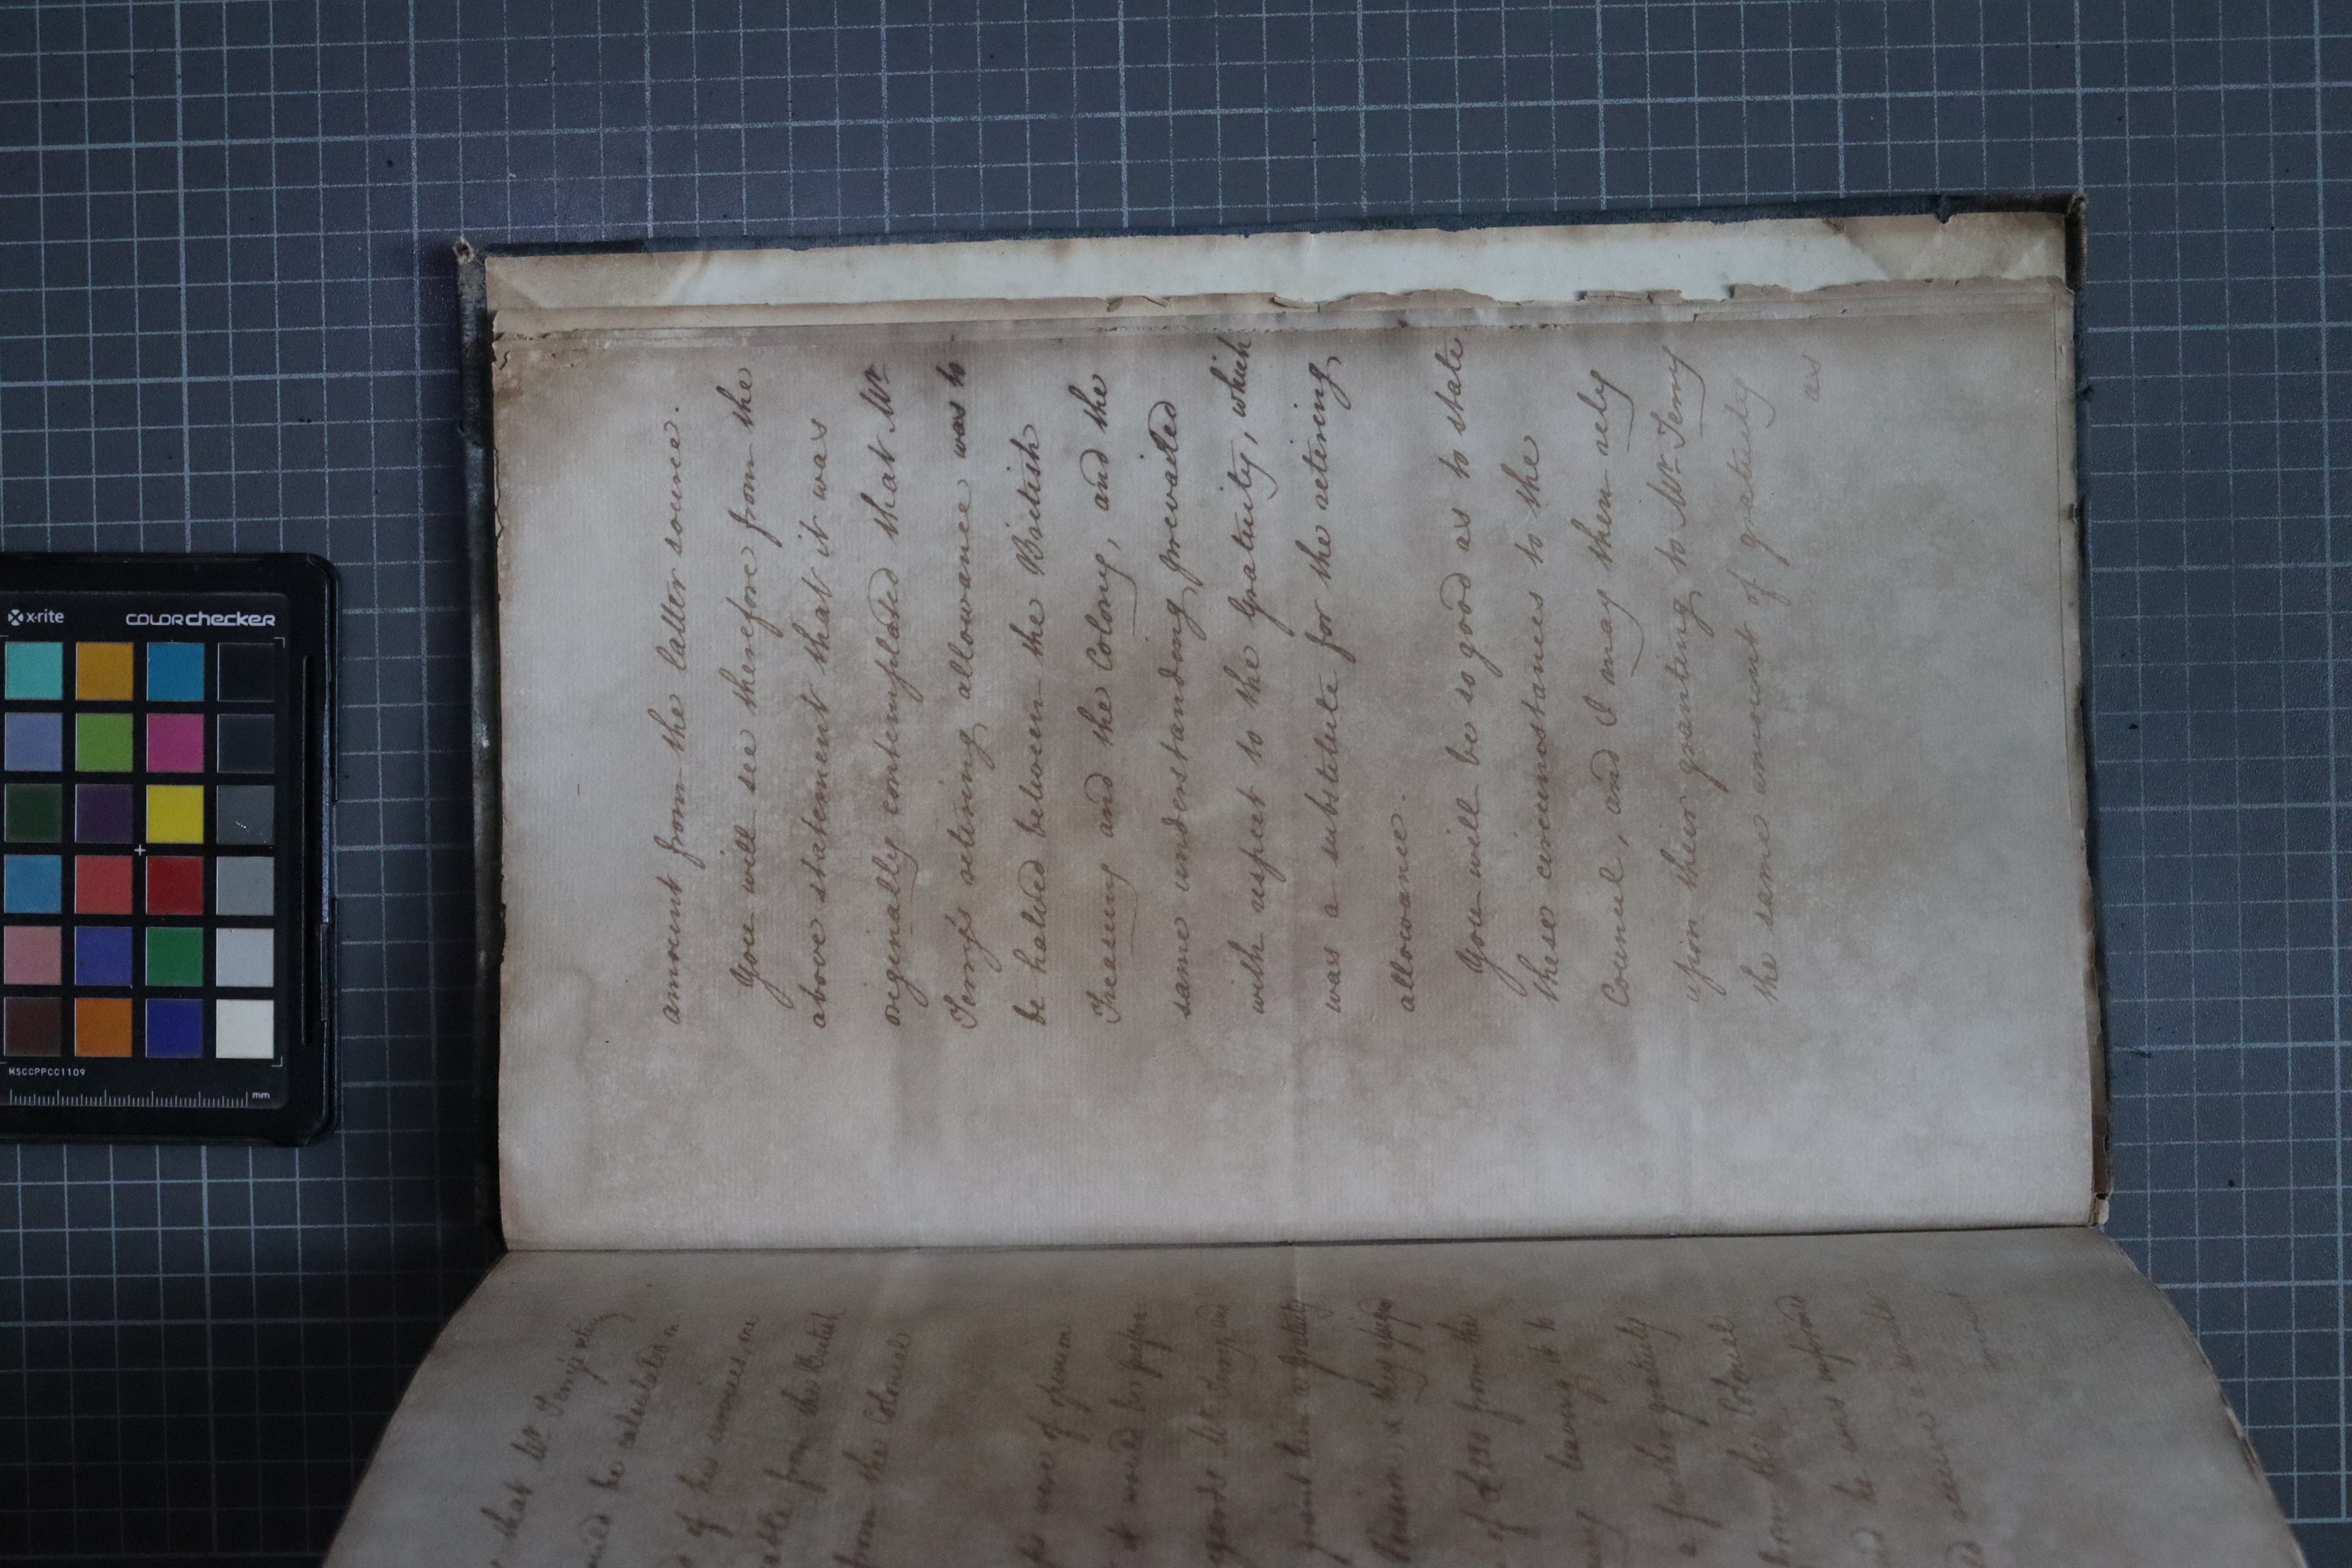 that Mr. Terry's retiring
be calculated on
of his services, one
from the British
from the Colonial
were of opinion
it would be
regards Mr. Terry and
grant him a Gratuity
Pension, & they
of from the
leaving it to
a further gratuity
from the Colonial
he was informed
receive a similar
amount
amount from the latter source.
You will see therefore from the
above statement that it was
originally contemplated that Mr.
Terry's retiring allowance was to
be halved between the British
Treasury and the Colony, and the
same understanding prevailed
with respect to the Gratuity, which
was a substitute for the retiring
allowance.
You will be so good as to state
these circumstances to the
Council, and I may then rely
upon their granting to Mr. Terry
the same amount of gratuity
as
x-rite
COLORchecker
MSCCPPCC1109
mm